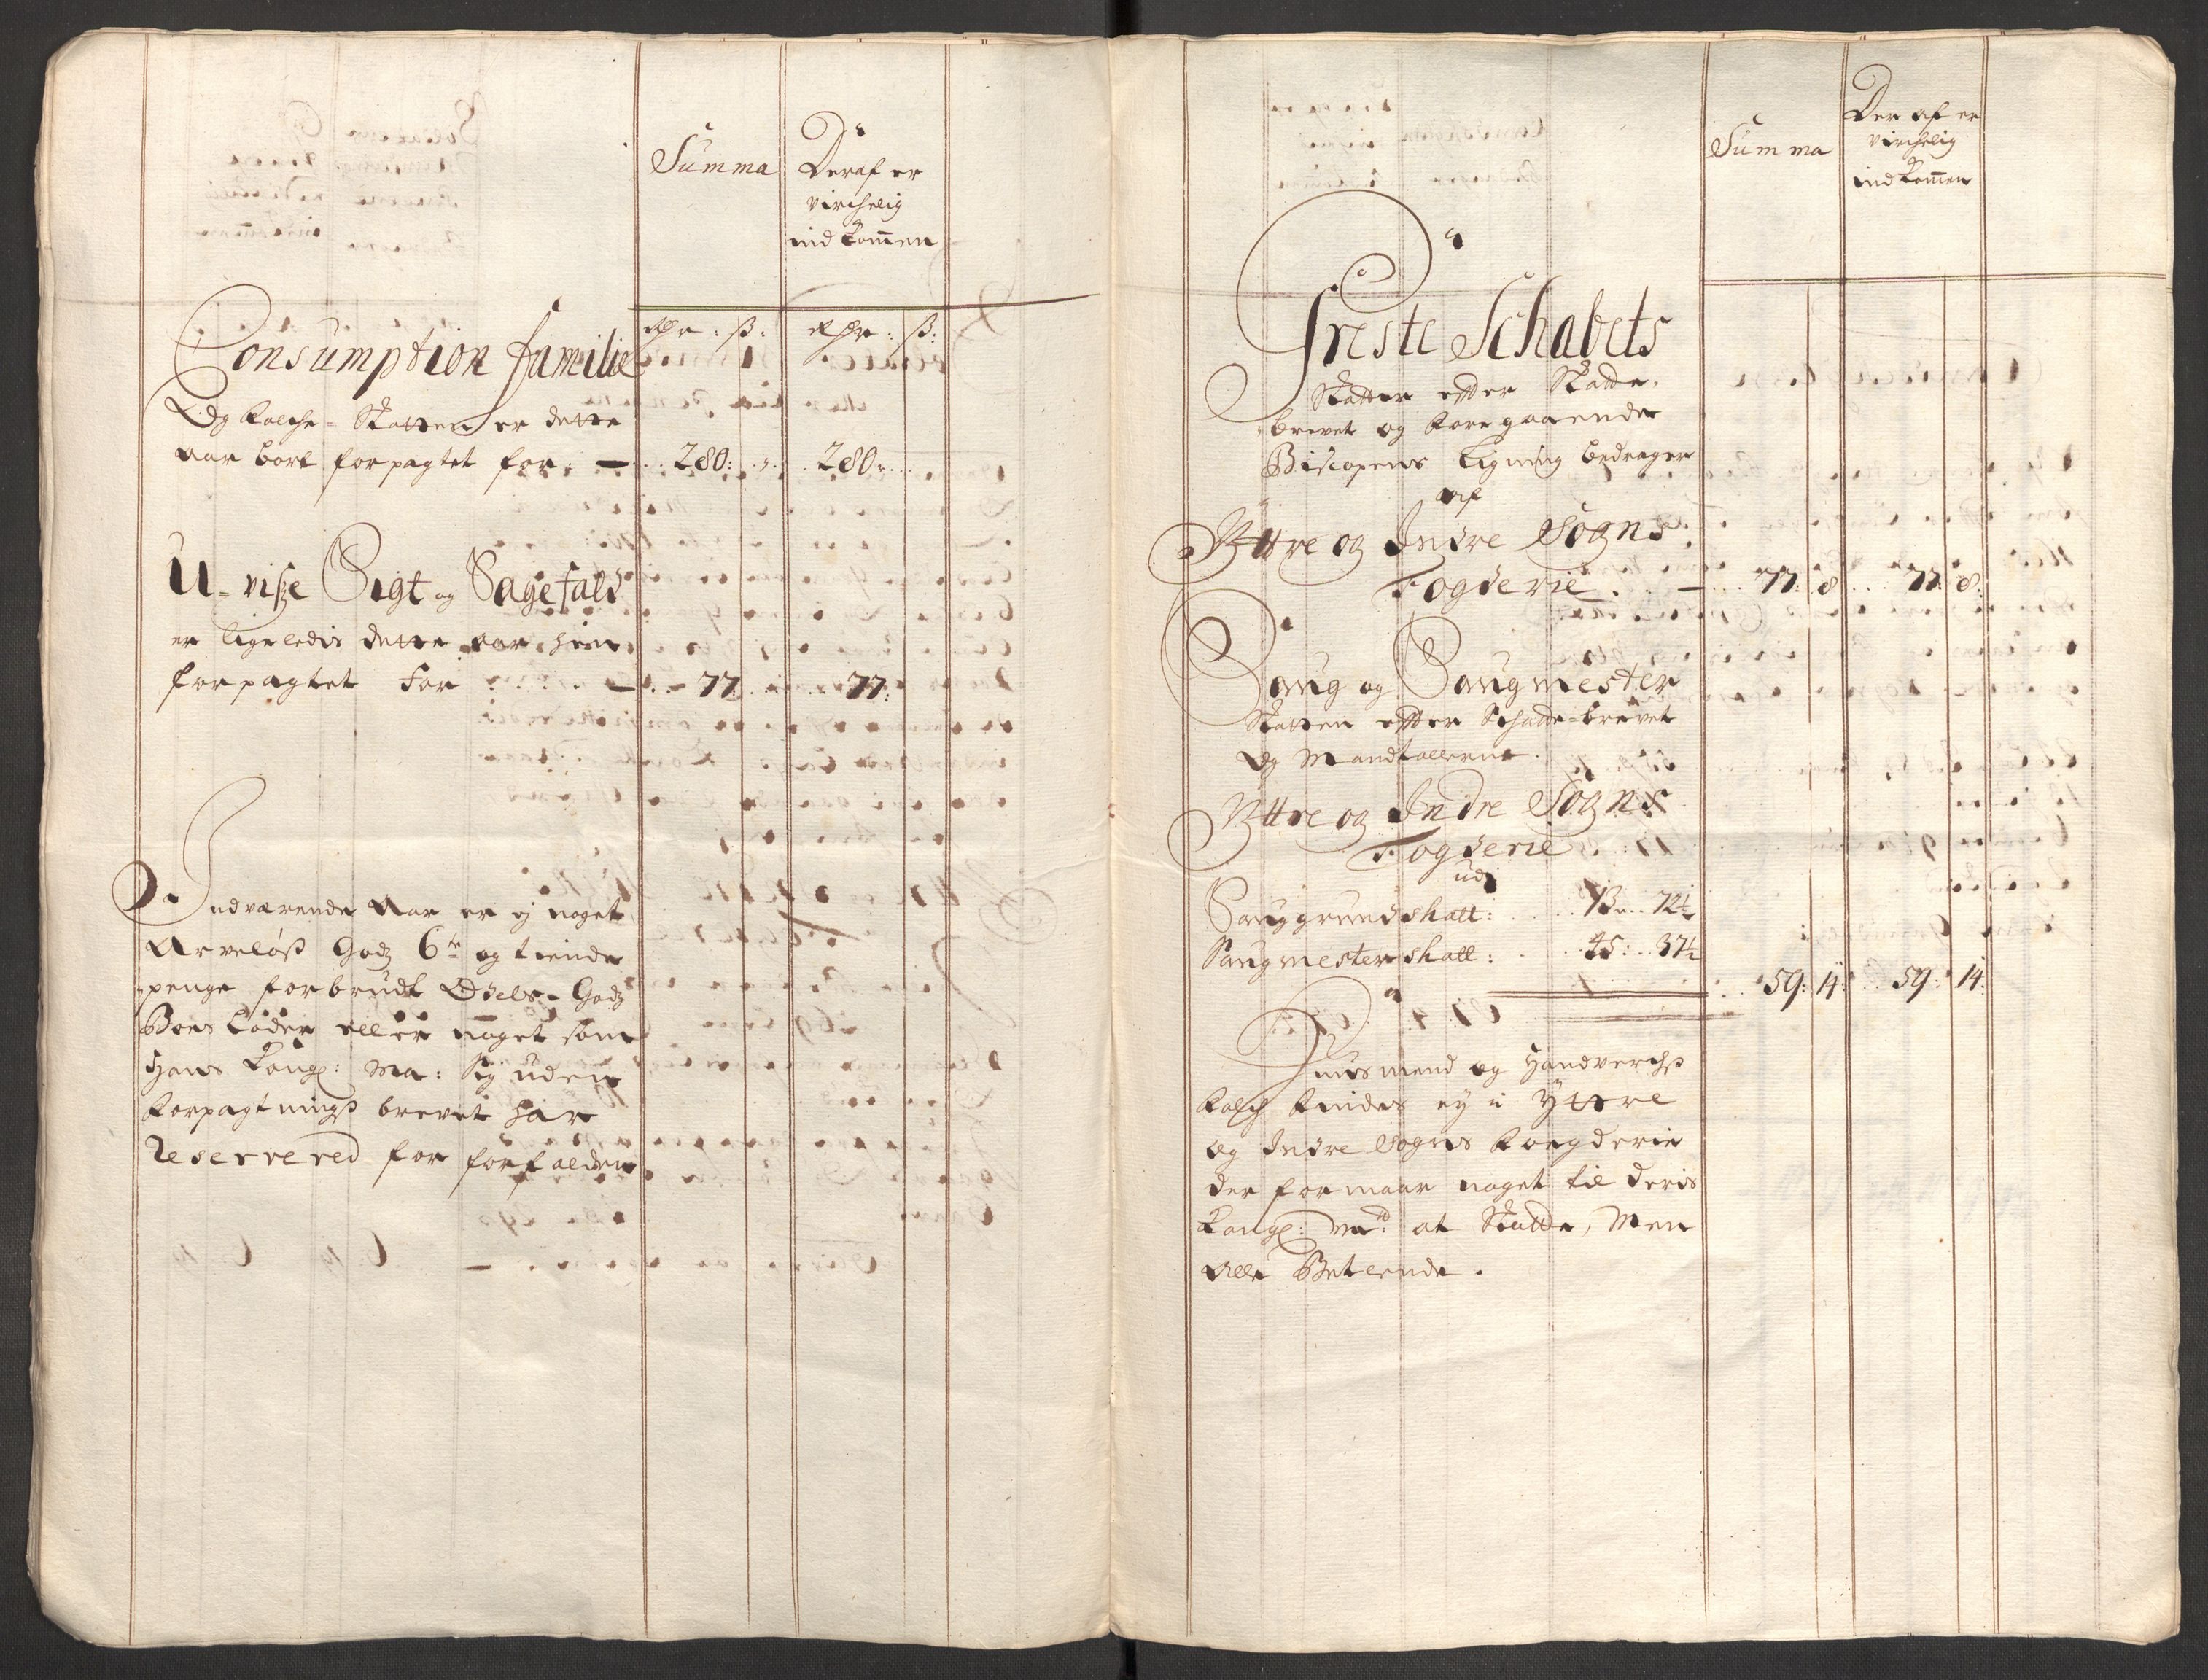 Summa
Deraf er
virchelig
ind komen
Rdr : ß: Rdr : ß:
Consumption familie
Og Folche=Skatten er dette
aar bort forpagtet for. — .. 280: . . 280: ..
U=visse Sigt og Sagefald
er ligeledis dette aar hen
forpagtet for . . . . — . . 77 . . . . 77:
Indværende Aar er ej noget
Arveløß Godz 6te og tiende
penge forbrudt Odels=Godz
Boes Løder eller noget som
Hans Kongl: Ma: Sig uden
forpagtningß brevet har
Reserrered for forfalden
Summa
Der af er
virchelig
ind komen
Preste Schabets
Skatter efter Skatte=
brevet og foregaaende
Biscopens Ligning bedrager
af
Yttre og Indre Sogns
Fogderie. . . — . . 77: 8 . . 77: 8:
Saug og Saugmester
Skatten efter Schatte=brevet
Og Mandtallerne.
Yttre og Indre Sogns
Fogderie
udj
Sauggrundskatt: . . . . 13 . . 72½
Saugmesterskatt: . . . 45: . . 37½
. . 59: 14: . . 59: 14:
Huusmend og Handverchß
folch findes ej i Yttre
og Indre Sogns Fogderie
der formaar noget til Deris
Kongl: Maᵗ: at Skatte, Men
alle Betlende.